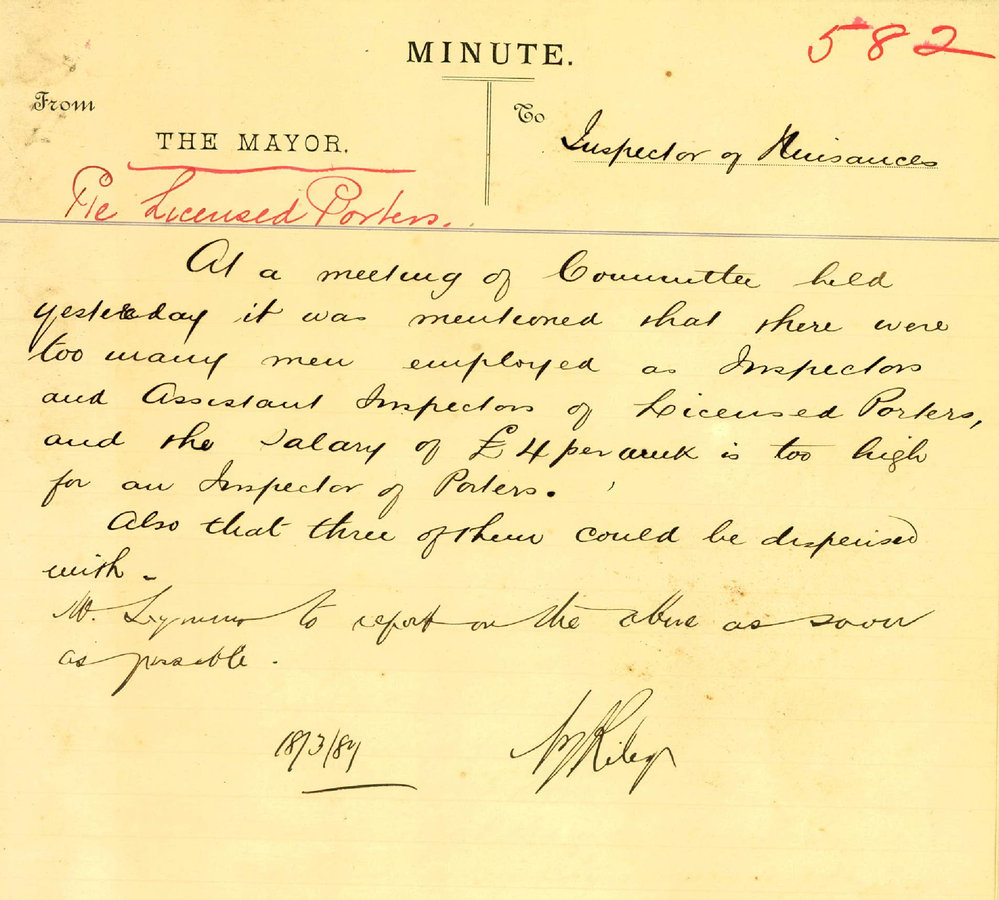 MINUTE.
582
From
To
THE MAYOR.
Inspector of Nuisances
Re Licensed Porters.
At a meeting of Committee held
yesterday it was mentioned that there were
too many men employed as Inspectors
and Assistant Inspectors of Licensed Porters,
and the salary of £4 per week is too high
for an Inspector of Porters.
Also that three of them could be dispensed
with.
Mr. Seymour to report on the above as soon
as possible.
18/3/87
Riley